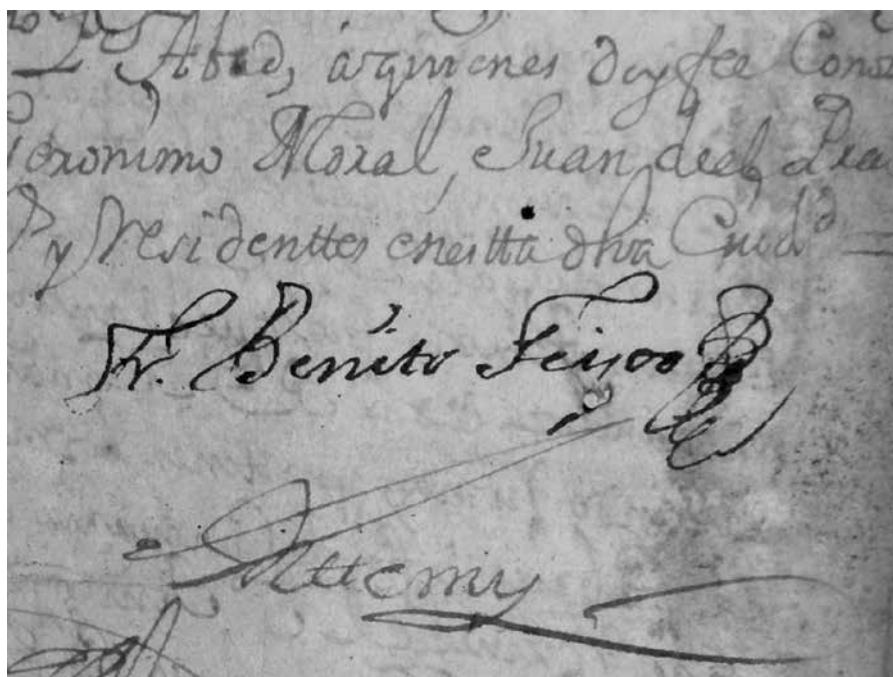 Abad, aquienes doy fee Cono
Geronimo Moral, Juan deel Pra
y Residenttes enestta dha Ciud.d
Fr. Benito Feijoo
Antte mi